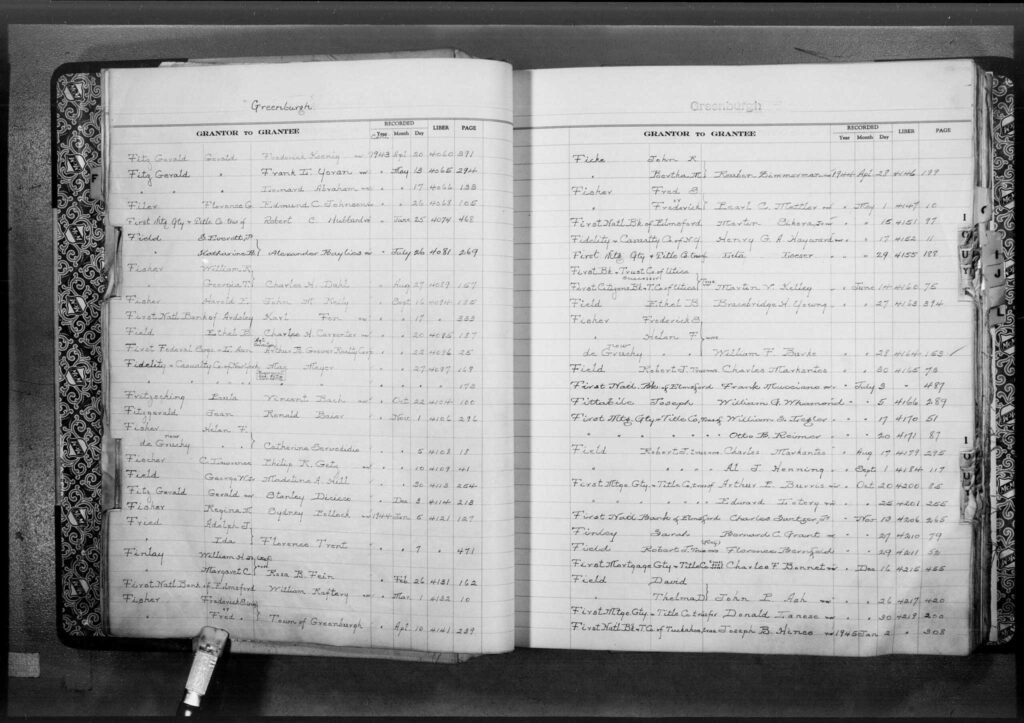 Greenburgh
GRANTOR TO GRANTEE RECORDED Year Month Day LIBER PAGE
Fitz Gerald Gerald Frederick Koenig 1943 Apl 20 4060 391
Fitz Gerald " Frank L. Yoran May 13 4065 294
" Bernard Abraham " 17 4066 133
Filer Florence G. Edmund C. Johnson " 26 4068 105
First Mtg Gty & Title Co Robert C. Hubbard June 25 4074 468
Field S. Everett, Jr
Katharine Alexander Baylies July 26 4081 269
Fisher William K.
Georgia T. Charles H. Dahl Aug 27 4089 157
Fisher Harold E. John M. Neily Sept 16 4094 135
First Natl Bank of Ardsley Karl Fon " 17 " 333
Field Ethel B. Charles H. Carpenter " 20 4095 187
First Federal Savgs & L. Assn Arthur B. Grover Realty Corp " 22 4096 25
Fidelity & Casualty Co of New York Max Meyer " 27 4097 169
" " " " " 173
Fritzsching Paula Vincent Bach Oct 22 4104 100
Fitzgerald Jean Ronald Baier Nov 1 4106 296
Fisher Helen F.
now
de Gruchy Catherine Servodidio " 5 4108 18
Fischer C. Lawrence Philip R. Getz " 10 4109 41
Field George W. Jr Madeline A. Hill " 30 4113 254
Fitz Gerald Gerald Stanley Dicicco Dec 3 4114 213
Fisher Regina K. Sydney Pollock 1944 Jan 5 4121 127
Fried Adolph J.
Ida Florence Trent " 7 " 471
Finlay William H.
Margaret C. Rosa B. Fein Feb 26 4131 162
First Natl Bank of Elmsford William Raftery Mar 1 4132 10
Fisher Frederick
or
Fred Town of Greenburgh Apl 10 4141 239
Greenburgh
GRANTOR TO GRANTEE RECORDED Year Month Day LIBER PAGE
Ficke John R.
Bertha M. Reuben Zimmerman 1944 Apl 28 4146 199
Fisher Fred S.
or
Frederick Earl C. Mettler May 1 4147 10
First Natl Bk of Elmsford Martin Sikera " 15 4151 97
Fidelity & Casualty Co of N.Y. Henry G. A. Hayward " 17 4152 11
First Mtg Gty & Title Co Loeser " 29 4155 188
First Bk & Trust Co of Utica
Successor
First Citizens Bk & T. Co of Utica Martin V. Kelley June 14 4160 75
Field Ethel B. Bracebridge H. Young " 27 4163 394
Fisher Frederick S.
Helen F.
now
de Gruchy William F. Burke " 28 4164 153
Field Robert J. Charles Markantes " 30 4165 73
First Natl Bk of Elmsford Frank Mucciano July 3 " 487
Fittabile Joseph William G. Whamond " 5 4166 289
First Mtg. Gty & Title Co William S. Ziegler " 17 4170 51
" " " " Otto B. Reimer " 20 4171 87
Field Robert J. Charles Markantes Aug 17 4179 295
" " Al J. Henning Sept 1 4184 117
First Mtge Gty & Title Co Arthur E. Burris Oct 20 4200 85
" " " " Edward " 25 4201 255
First Natl Bank of Elmsford Charles Nov 13 4206 265
Finlay Sarah Bernard C. Grant " 27 4210 79
Field Robert J. Florence Barnfield " 29 4211 52
First Mortgage Gty & Title Co Charles F. Bennet Dec 16 4215 455
Field David
Thelma D John P. Ash " 26 4217 420
First Mtge. Gty & Title Co Donald Ianece " 30 4219 200
First Natl Bk & T. Co of Tuckahoe Joseph B. Hines 1945 Jan 2 " 308